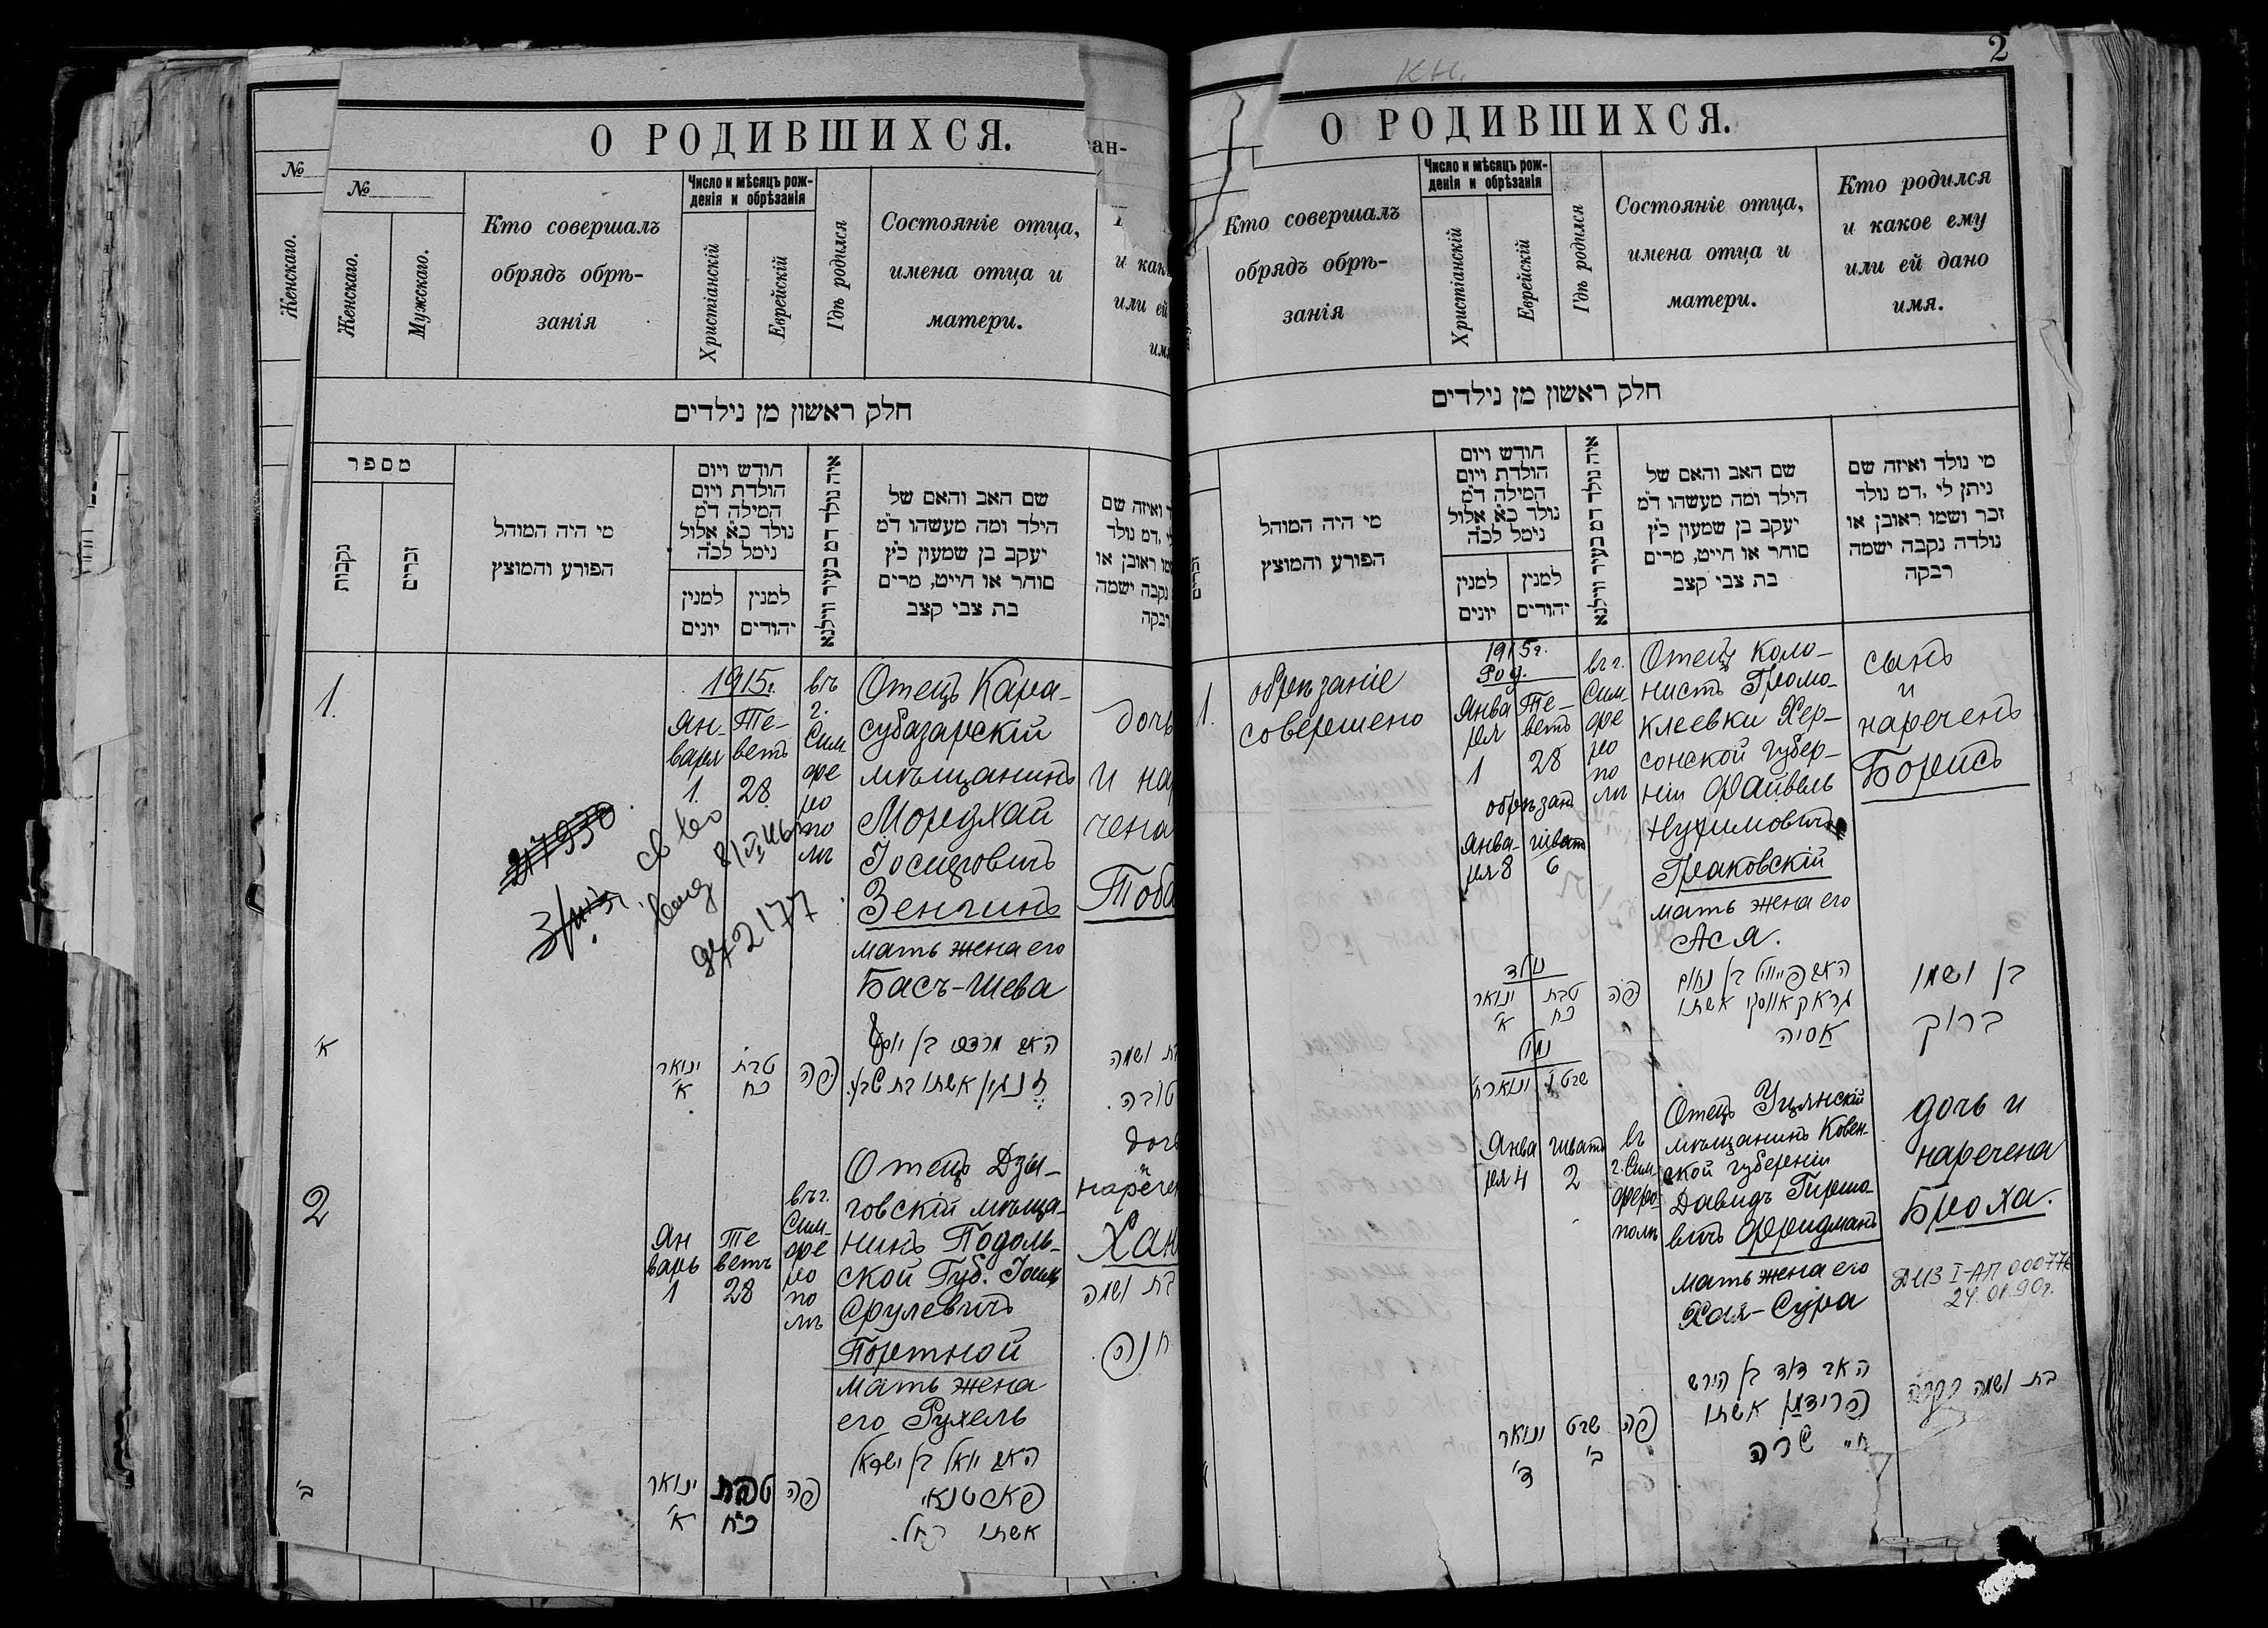 О РОДИВШИХСЯ.
ан-
№
№
Женскаго.
Женскаго.
Мужскаго.
Кто совершалъ
обрядъ обрѣ-
занія
Число и мѣсяцъ рож-
денія и обрѣзанія
Христіанскій
Еврейскій
Гдѣ родился
Состояніе отца,
имена отца и
матери.
или ей
חלק ראשון מן נילדים
מספר
נקבות
זכרים
מי היה המוהל
הפורע והמוצץ
חודש ויום
הולדת ויום
המילה ד״מ
נולד כ״א אלול
נימל לכ״ה
למנין
יונים
למנין
יהודים
איה נולד דמ בעיר ווילנא
שם האב והאם של
הילד ומה מעשהו ד״מ
יעקב בן שמעון כ״ץ
סוחר או חייט, מרים
בת צבי קצב
ואיזה שם
דמ נולד
ראובן או
נקבה ישמה
רבקה
1.
1915г.
Ян-
варя
1.
Те-
ветъ
28
въ
г.
Сим
фе
ро
по
лѣ
Отецъ Кара-
субазарскій
мѣщанинъ
Мордхай
Іосифовичъ
Зенгинъ
мать жена его
Басъ-Шева
дочь
и на
чена
Тоба
217930
972177
א
ינואר
א׳
טבת
כח
פה
האב מרדכי בן יוסף
זנגין אשתו בת שבע.
בת ושמה
טובה.
2
Ян
варь
1
Те
ветъ
28
въ г.
Сим-
фе
ро
по
лѣ
Отецъ Дзы-
говскій мѣща-
нинъ Подоль-
ской Губ. Іоиль
Срулевичъ
Портной
мать жена
его Рухель
дочь
и
нарече
Хан
ב׳
ינואר
א׳
טבת
כ״ח
פה
האב יואל בן ישראל
פארטנאי
אשתו רחל.
בת ושמה
חנה.
2
кн.
О РОДИВШИХСЯ.
Кто совершалъ
обрядъ обрѣ-
занія
Число и мѣсяцъ рож-
денія и обрѣзанія
Христіанскій
Еврейскій
Гдѣ родился
Состояніе отца,
имена отца и
матери.
Кто родился
и какое ему
или ей дано
имя.
חלק ראשון מן נילדים
זכרים
מי היה המוהל
הפורע והמוצץ
חודש ויום
הולדת ויום
המילה ד״מ
נולד כ״א אלול
נימל לכ״ה
למנין
יונים
למנין
יהודים
איה נולד דמ בעיר ווילנא
שם האב והאם של
הילד ומה מעשהו ד״מ
יעקב בן שמעון כ״ץ
סוחר או חייט, מרים
בת צבי קצב
מי נולד ואיזה שם
ניתן לי, דמ נולד
זכר ושמו ראובן או
נולדה נקבה ישמה
רבקה
1.
обрѣзаніе
совершено
1915г.
Род.
Янва
ря
1
Те-
ветъ
28
обрѣзанъ
Янва-
ря 8
Шватъ
6
въ г.
Сим
фе
ро
по
лѣ
Отецъ Коло-
нистъ Громо-
клеевки Хер-
сонской губер-
ніи Файвель
Нухимовичъ
Граковскій
мать жена его
Ася.
сынъ
и
нареченъ
Борисъ
נולד
ינואר
א׳
טבת
כח
פה
האב פייוויל בן נחום
גראקאווסקי אשתו
אסיה
בן ושמו
ברוך
נמול
ינואר ח׳
שבט ו׳
Янва
ря 4
Шватъ
2
въ
г. Сим
феро-
полѣ
Отецъ Уцянскій
мѣщанинъ Ковен-
ской губерніи
Давидъ Гиршо-
вичъ Фридманъ
мать жена его
Хая-Сура
дочь и
наречена
Броха.
I-АП 000776
24.01.90г.
ינואר
ד׳
שבט
ב׳
פה
האב דוד בן הירש
פרידמן אשתו
חי׳ שרה
בת ושמה ברכה